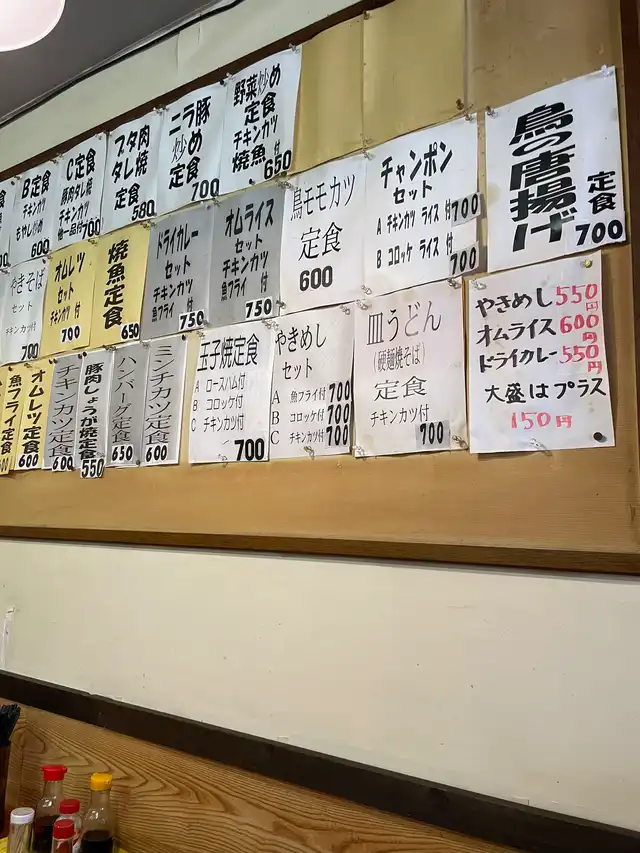 B定食
チキンカツ
もやし炒め
600
C定食
豚肉タレ焼
チキンカツ
他一品付
700
ブタ肉
タレ焼
定食
580
ニラ豚
炒め
定食
700
野菜炒め
定食
チキンカツ
焼魚
650
やきそば
セット
チキンカツ付
700
オムレツ
セット
チキンカツ付
700
焼魚定食
650
ドライカレー
セット
チキンカツ
魚フライ付
750
オムライス
セット
チキンカツ
魚フライ付
750
鳥モモカツ
定食
600
チャンポン
セット
A チキンカツ ライス 付 700
B コロッケ ライス 付
700
鳥の唐揚げ
定食
700
魚フライ定食
オムレツ定食
600
チキンカツ定食
600
豚肉しょうが焼定食
550
ハンバーグ定食
650
ミンチカツ定食
600
玉子焼定食
A ロースハム付
B コロッケ付
C チキンカツ付
700
やきめし
セット
A 魚フライ付 700
B コロッケ付 700
C チキンカツ付 700
皿うどん
(硬麺焼そば)
定食
チキンカツ付
700
やきめし 550円
オムライス 600円
ドライカレー 550円
大盛はプラス
150円